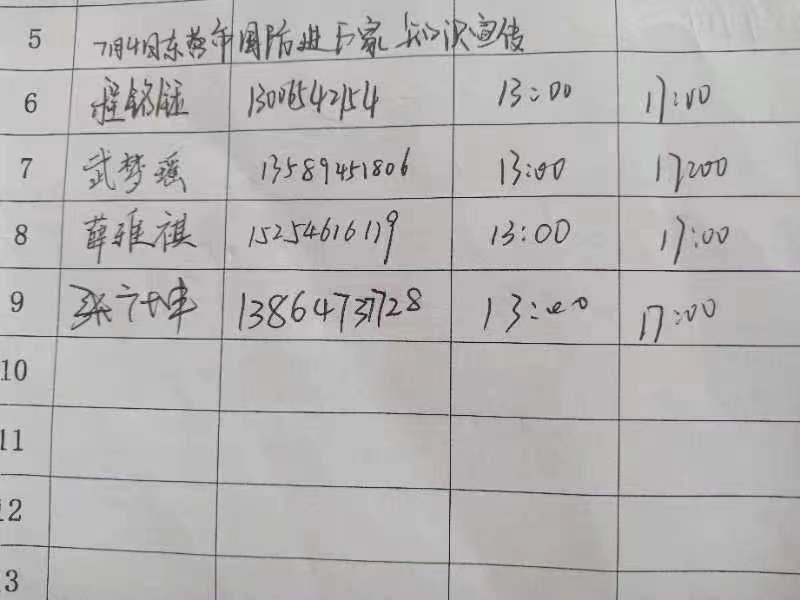 5 7月4日东营市国防进万家知识宣传
6 程铭钰 13006542154 13:00 17:00
7 武梦瑶 13589451806 13:00 17:00
8 薛雅祺 15254616119 13:00 17:00
9 张 13864737728 13:00 17:00
10
11
12
13